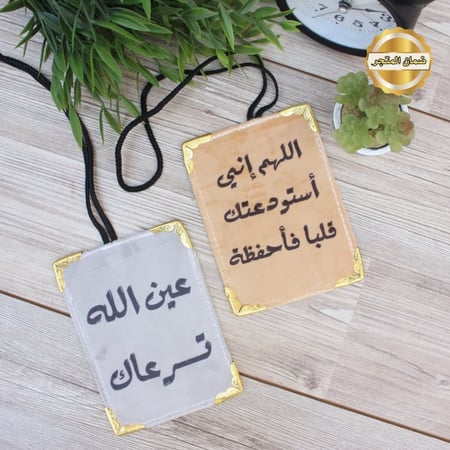 ضمان المتجر
اللهم إني
أستودعتك
قلبا فأحفظة
عين الله
ترعاك